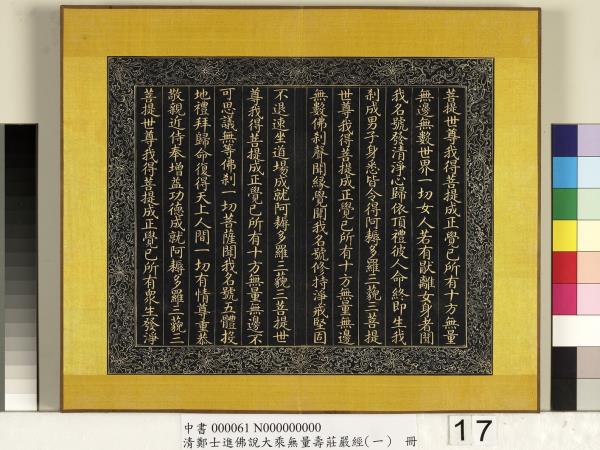 菩提世尊我得菩提成正覺已所有十方無量
無邊無數世界一切女人若有猒離女身者聞
我名號發清淨心歸依頂禮彼人命終即生我
刹成男子身悉皆令得阿耨多羅三藐三菩提
世尊我得菩提成正覺已所有十方無量無邊
無數佛刹聲聞緣覺聞我名號修持淨戒堅固
不退速坐道場成就阿耨多羅三藐三菩提世
尊我得菩提成正覺已所有十方無量無邊不
可思議無等佛刹一切菩薩聞我名號五體投
地禮拜歸命復得天上人間一切有情尊重恭
敬親近侍奉增益功德成就阿耨多羅三藐三
菩提世尊我得菩提成正覺已所有眾生發淨
中書 000061 N000000000
清鄭士進佛說大乘無量壽莊嚴經(一) 冊
17